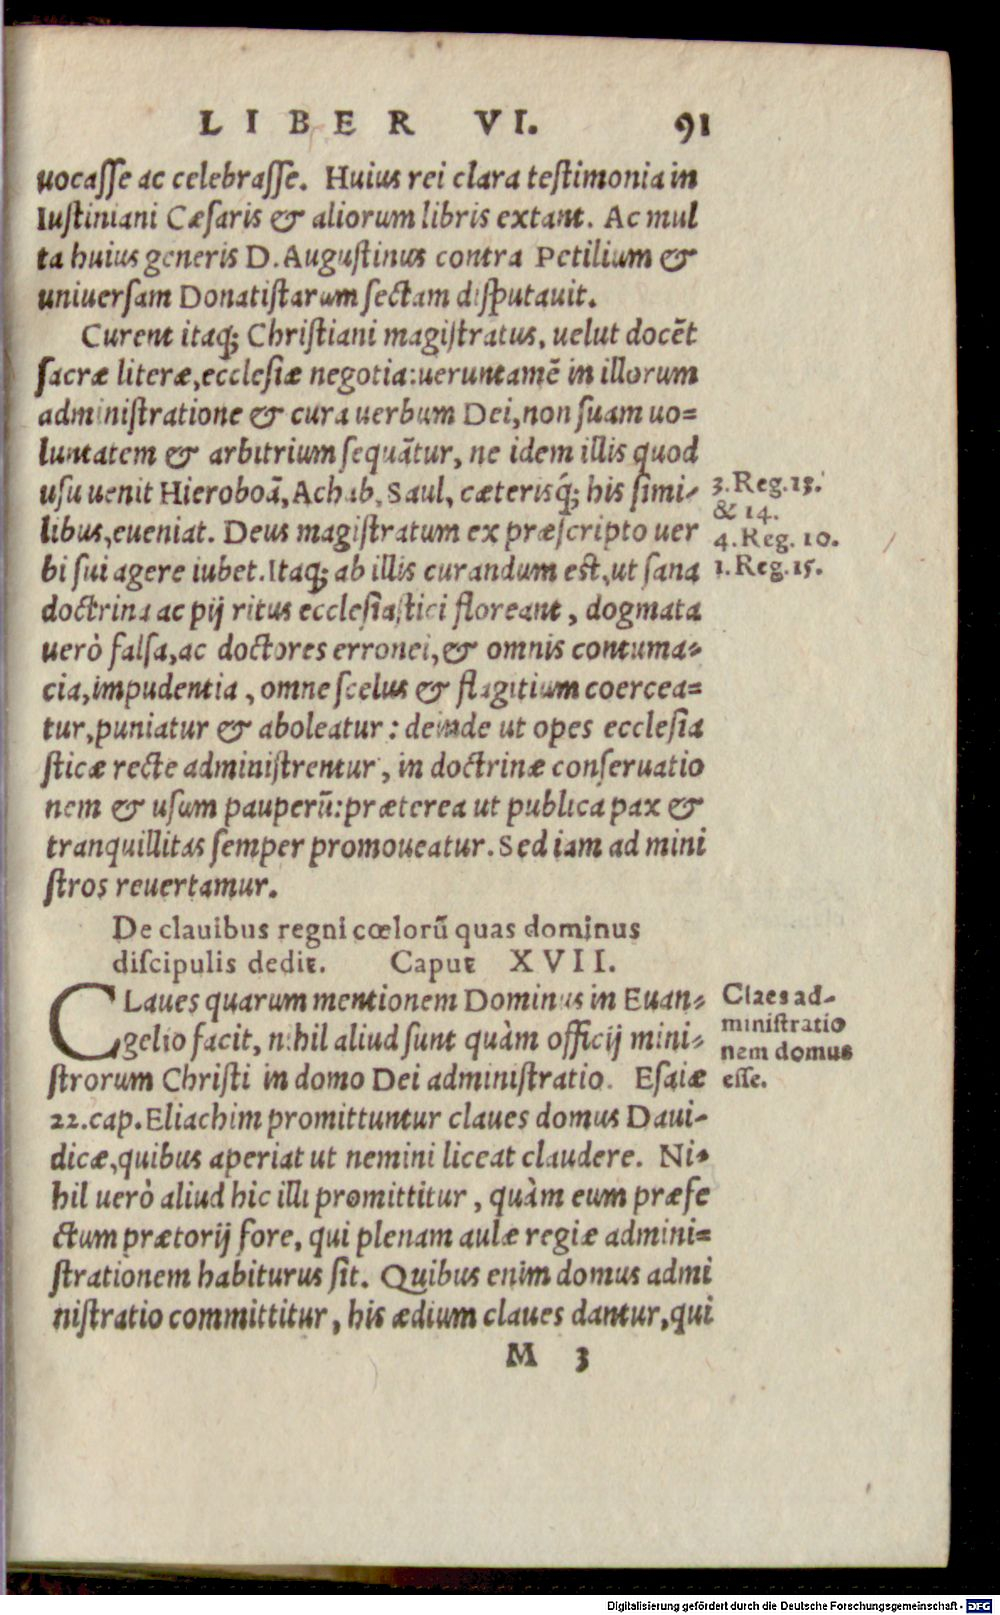 LIBER VI. 91
uocasse ac celebrasse. Huius rei clara testimonia in
Iustiniani Cæsaris & aliorum libris extant. Ac mul
ta huius generis D. Augustinus contra Petilium &
uniuersam Donatistarum sectam disputauit.
Curent itaq; Christiani magistratus, uelut docēt
sacræ literæ, ecclesiæ negotia: ueruntamē in illorum
administratione & cura uerbum Dei, non suam uo=
luntatem & arbitrium sequātur, ne idem illis quod
usu uenit Hieroboā, Achab, Saul, cæterisq́; his simi-
libus, eueniat. Deus magistratum ex præscripto uer
bi sui agere iubet. Itaq; ab illis curandum est, ut sana
doctrina ac pij ritus ecclesiastici floreant, dogmata
uerò falsa, ac doctores erronei, & omnis contuma-
cia, impudentia, omne scelus & flagitium coercea=
tur, puniatur & aboleatur: deinde ut opes ecclesia
sticæ recte administrentur, in doctrinæ conseruatio
nem & usum pauperū: præterea ut publica pax &
tranquillitas semper promoueatur. Sed iam ad mini
stros reuertamur.
3. Reg. 13.
& 14.
4. Reg. 10.
1. Reg. 15.
De clauibus regni cœlorū quas dominus
discipulis dedit. Caput XVII.
CLaues quarum mentionem Dominus in Euan-
gelio facit, nihil aliud sunt quàm officij mini-
strorum Christi in domo Dei administratio. Esaiæ
22. cap. Eliachim promittuntur claues domus Daui-
dicæ, quibus aperiat ut nemini liceat claudere. Ni-
hil uerò aliud hic illi promittitur, quàm eum præfe
ctum prætorij fore, qui plenam aulæ regiæ admini=
strationem habiturus sit. Quibus enim domus admi
nistratio committitur, his ædium claues dantur, qui
Claes ad-
ministratio
nem domus
esse.
M 3
Digitalisierung gefördert durch die Deutsche Forschungsgemeinschaft - DFG